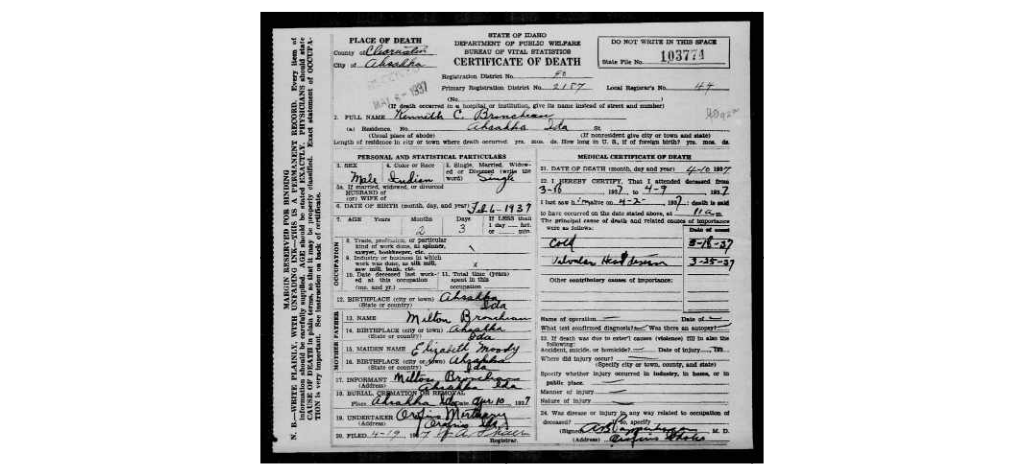 STATE OF IDAHO
DEPARTMENT OF PUBLIC WELFARE
BUREAU OF VITAL STATISTICS
CERTIFICATE OF DEATH
DO NOT WRITE IN THIS SPACE
State File No. 103774
PLACE OF DEATH
County of
City of Ahsahka
MAY 6-1937
Registration District No.
Primary Registration District No. 2157 Local Registrar's No. 44
(No.
(If death occurred in a hospital or institution, give its name instead of street and number)
2. FULL NAME Kenneth C. Broncheau
(a) Residence, No. Ahsahka Ida St.
(Usual place of abode) (If nonresident give city or town and state)
Length of residence in city or town where death occurred yrs. mos. ds. How long in U. S., if of foreign birth? yrs. mos. ds.
PERSONAL AND STATISTICAL PARTICULARS
3. SEX 4. Color or Race 5. Single, Married, Widowed or Divorced (write the word)
Male Indian Single
5a. If married, widowed, or divorced
HUSBAND of
(or) WIFE of
6. DATE OF BIRTH (month, day, and year) Feb 6-1937
7. AGE Years Months Days If LESS than
1 day hr.
or min.
2 3
OCCUPATION
8. Trade, profession, or particular
kind of work done, as spinner,
sawyer, bookkeeper, etc.
9. Industry or business in which
work was done, as silk mill,
saw mill, bank, etc.
10. Date deceased last worked at this occupation (mo. and yr.)
11. Total time (years) spent in this occupation
12. BIRTHPLACE (city or town) Ahsahka
(State or country) Ida
MOTHER FATHER
13. NAME Milton Broncheau
14. BIRTHPLACE (city or town) Ahsahka
(State or country) Ida
15. MAIDEN NAME Elizabeth Moody
16. BIRTHPLACE (city or town) Ahsahka
(State or country) Ida
17. INFORMANT Milton Broncheau
(Address) Ahsahka Ida
18. BURIAL, CREMATION OR REMOVAL
Place Ahsahka Ida Date Apr 10 1937
19. UNDERTAKER Orofino Mortuary
(Address) Orofino Ida
20. FILED 4-19 1937
Registrar.
MEDICAL CERTIFICATE OF DEATH
21. DATE OF DEATH (month, day and year) 4-10 1937
22. I HEREBY CERTIFY, That I attended deceased from
3-18 1937 to 4-9 1937
I last saw him alive on 4-2- 1937 death is said
to have occurred on the date stated above, at 11 a m.
The principal cause of death and related causes of importance
were as follows: Date of onset
Cold 3-18-37
Valvular Heart 3-25-37
Other contributory causes of importance:
Name of operation Date of
What test confirmed diagnosis? Was there an autopsy?
23. If death was due to external causes (violence) fill in also the
following:
Accident, suicide, or homicide? Date of injury 193
Where did injury occur?
(Specify city or town, county, and state)
Specify whether injury occurred in industry, in home, or in
public place.
Manner of injury
Nature of injury
24. Was disease or injury in any way related to occupation of
deceased? If so, specify
(Signed) M. D.
(Address) Orofino Idaho
MARGIN RESERVED FOR BINDING
N. B.—WRITE PLAINLY, WITH UNFADING INK—THIS IS A PERMANENT RECORD. Every item of
information should be carefully supplied. AGE should be stated EXACTLY. PHYSICIANS should state
CAUSE OF DEATH in plain terms, so that it may be properly classified. Exact statement of OCCUPATION is very important. See instruction on back of certificate.